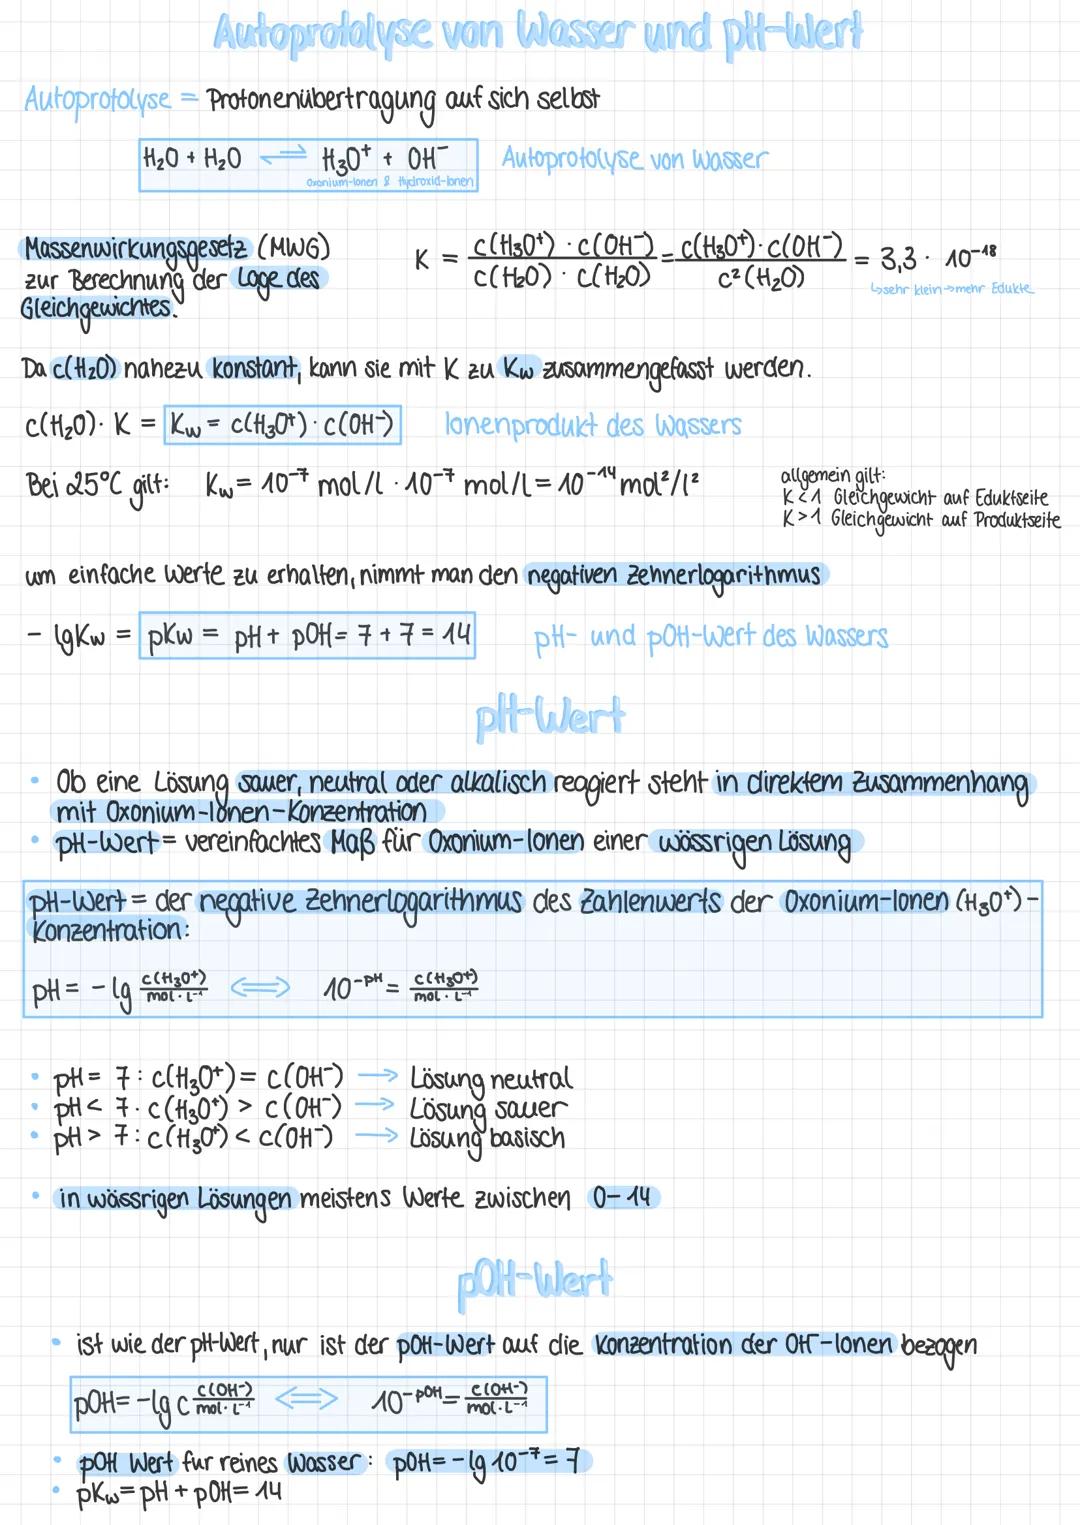 Autoprotolyse von Wasser und pH-Wert
Autoprotolyse = Protonenübertragung auf sich selbst
H₂O + H₂O ⇌ H₃O⁺ + OH⁻ Autoprotolyse von Wasser
Oxonium-Ionen & Hydroxid-Ionen
Massenwirkungsgesetz (MWG)
zur Berechnung der Lage des
Gleichgewichtes.
K = c(H₃O⁺) · c(OH⁻) / c(H₂O) · c(H₂O) = c(H₃O⁺) · c(OH⁻) / c²(H₂O) = 3,3 · 10⁻¹⁸
↳sehr klein→mehr Edukte
Da c(H₂O) nahezu konstant, kann sie mit K zu Kw zusammengefasst werden.
c(H₂O) · K = Kw = c(H₃O⁺) · c(OH⁻) Ionenprodukt des Wassers
Bei 25°C gilt: Kw = 10⁻⁷ mol/l · 10⁻⁷ mol/l = 10⁻¹⁴ mol²/l²
allgemein gilt:
K<1 Gleichgewicht auf Eduktseite
K>1 Gleichgewicht auf Produktseite
um einfache Werte zu erhalten, nimmt man den negativen Zehnerlogarithmus
- lgKw = pKw = pH + pOH = 7 + 7 = 14 pH- und pOH-Wert des Wassers
pH-Wert
• Ob eine Lösung sauer, neutral oder alkalisch reagiert steht in direktem Zusammenhang
mit Oxonium-Ionen-Konzentration
• pH-Wert = vereinfachtes Maß für Oxonium-Ionen einer wässrigen Lösung
pH-Wert = der negative Zehnerlogarithmus des Zahlenwerts der Oxonium-Ionen (H₃O⁺)-
Konzentration:
pH = - lg c(H₃O⁺) / mol · L⁻¹ ⟺ 10⁻ᵖᴴ = c(H₃O⁺) / mol · L⁻¹
• pH = 7 : c(H₃O⁺) = c(OH⁻) → Lösung neutral
• pH < 7 · c(H₃O⁺) > c(OH⁻) → Lösung sauer
• pH > 7 : c(H₃O⁺) < c(OH⁻) → Lösung basisch
• in wässrigen Lösungen meistens Werte zwischen 0-14
pOH-Wert
• ist wie der pH-Wert, nur ist der pOH-Wert auf die Konzentration der OH⁻-Ionen bezogen
pOH = -lg c c(OH⁻) / mol · L⁻¹ ⟺ 10⁻ᵖᴼᴴ = c(OH⁻) / mol · L⁻¹
• pOH Wert fur reines Wasser: pOH = - lg 10⁻⁷ = 7
• pKw = pH + pOH = 14